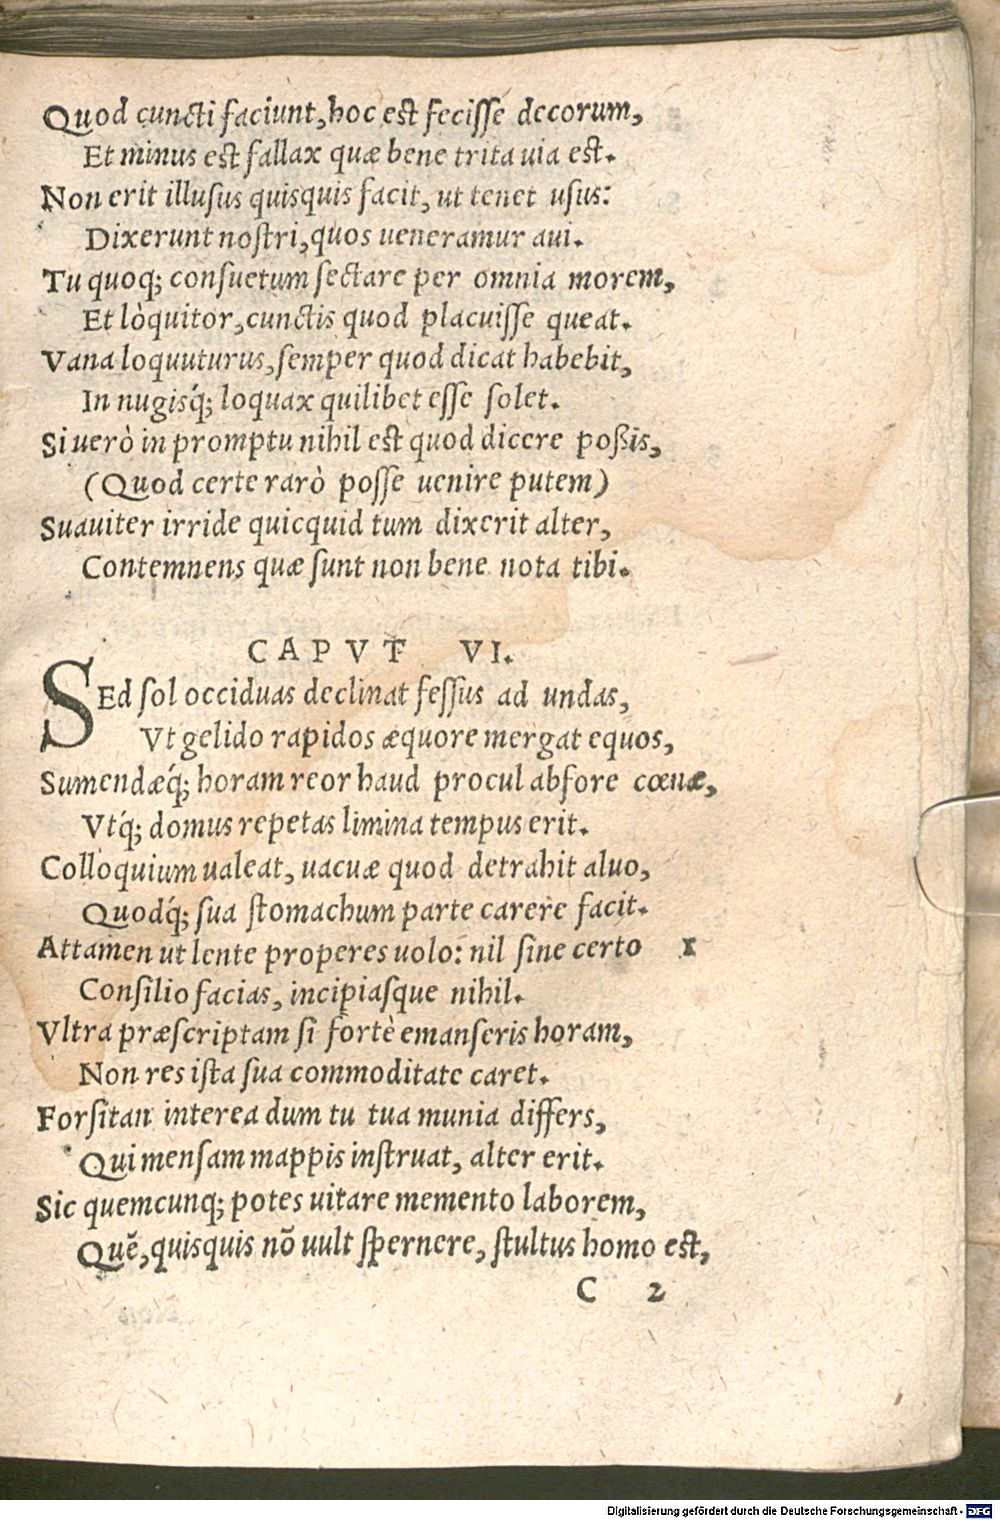 Quod cuncti faciunt, hoc est fecisse decorum,
Et minus est fallax quæ bene trita uia est.
Non erit illusus quisquis facit, ut tenet usus:
Dixerunt nostri, quos ueneramur aui.
Tu quoq; consuetum sectare per omnia morem,
Et lòquitor, cunctis quod placuisse queat.
Vana loquuturus, semper quod dicat habebit,
In nugisq́; loquax quilibet esse solet.
Si uerò in promptu nihil est quod dicere poßis,
(Quod certe rarò posse uenire putem)
Suauiter irride quicquid tum dixerit alter,
Contemnens quæ sunt non bene nota tibi.
CAPVT VI.
SEd sol occiduas declinat fessus ad undas,
Vt gelido rapidos æquore mergat equos,
Sumendæq́; horam reor haud procul abfore cœnæ,
Vtq́; domus repetas limina tempus erit.
Colloquium ualeat, uacuæ quod detrahit aluo,
Quodq́; sua stomachum parte carere facit.
Attamen ut lente properes uolo: nil sine certo 1
Consilio facias, incipiasque nihil.
Vltra præscriptam si fortè emanseris horam,
Non res ista sua commoditate caret.
Forsitan interea dum tu tua munia differs,
Qui mensam mappis instruat, alter erit.
Sic quemcunq; potes uitare memento laborem,
Quē, quisquis nō uult spernere, stultus homo est,
C 2
Digitalisierung gefördert durch die Deutsche Forschungsgemeinschaft - DFG